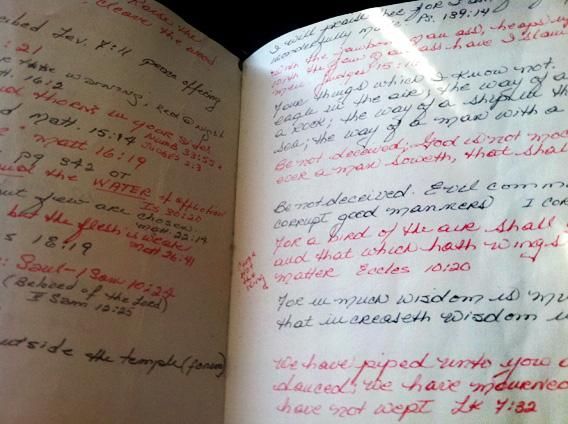 Raise the,
Cleave the wood
cribed Lev. 7:11 peace offering
: 21
the warning, Red @ night
Matt. 16:2
thorns in your sides
Numb 33:55 +
Judges 2:3
nd Matt. 15:14
matt 16:19
pg 342 OT
and the WATER of affliction
Is 30:20
but few are chosen.
matt 22:14
but the flesh is weak
Matt 26:41
s 18:19
: Saul-1 Sam 10:24
(Beloved of the Lord)
II Sam 12:25
utside the temple (forum)
I will praise thee for I am
wonderfully made Ps. 139:14
With the jawbone of an ass, heaps up
with the jaw of an ass have I slain
men Judges 15:16
Four things which I know not.
eagle in the air; the way of a
a rock; the way of a ship in th
sea; the way of a man with a
Be not deceived; God is not moc
ever a man soweth, that shal
Be not deceived. Evil comm
corrupt good manners I Cor
For a bird of the air shall
and that which hath wings
matter Eccles 10:20
For in much wisdom is mu
that increaseth wisdom i
We have piped unto you a
danced; we have mourned
have not wept LK 7:32